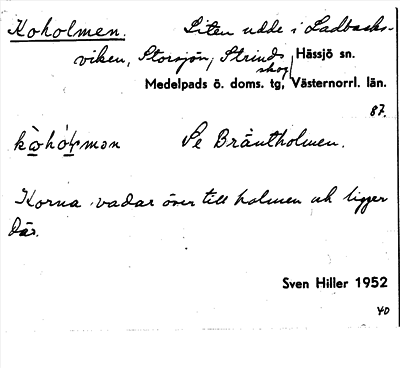 Koholmen. Liten udde i Ladbacks-
viken, Storsjön, Strinds skog, Hässjö sn.
Medelpads ö. doms. tg, Västernorrl. län.
87.
Se Bräntholmen.
Korna vadar över till holmen och ligger
där.
Sven Hiller 1952
40